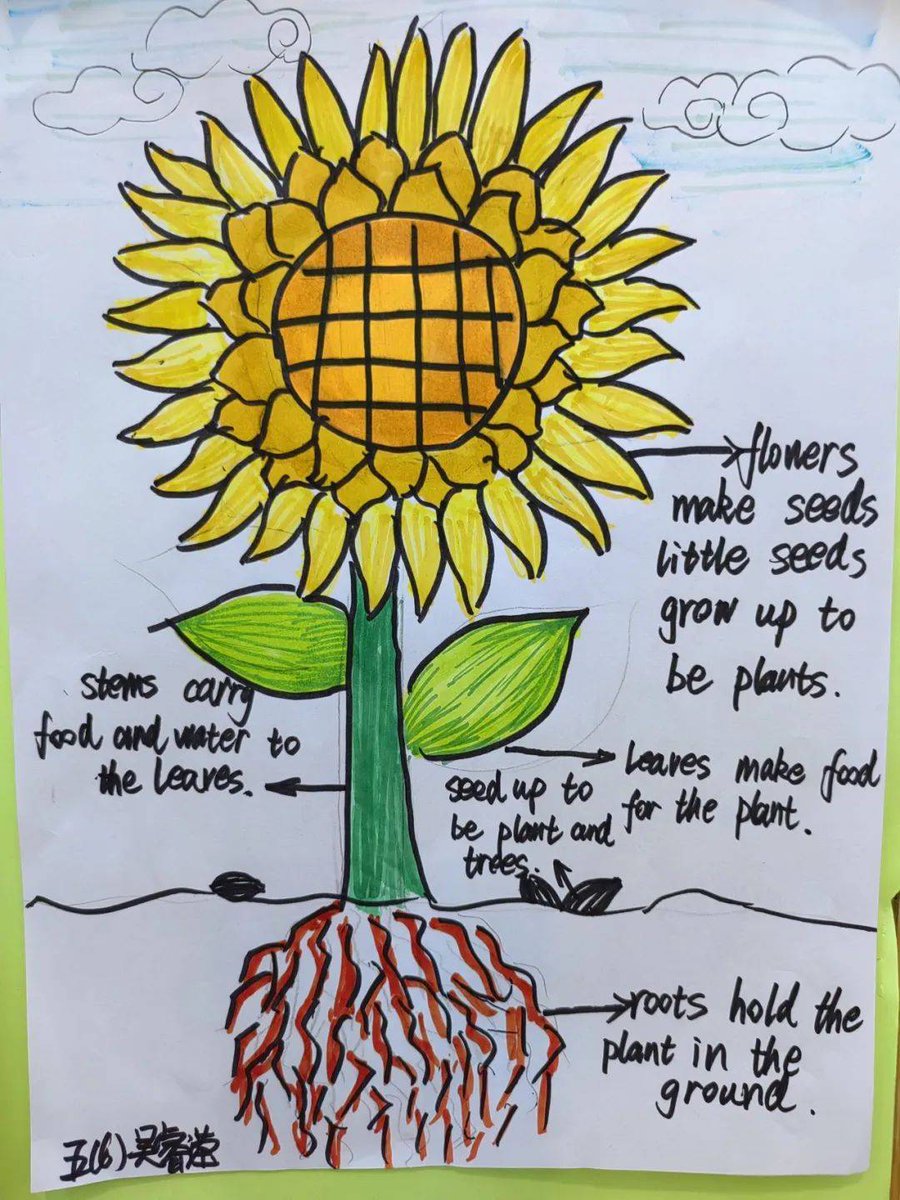 flowers
make seeds
little seeds
grow up to
be plants.
stems carry
food and water to
the leaves.
leaves make food
for the plant.
seed up to
be plant and
trees.
roots hold the
plant in the
ground.
五(6)吴睿滢